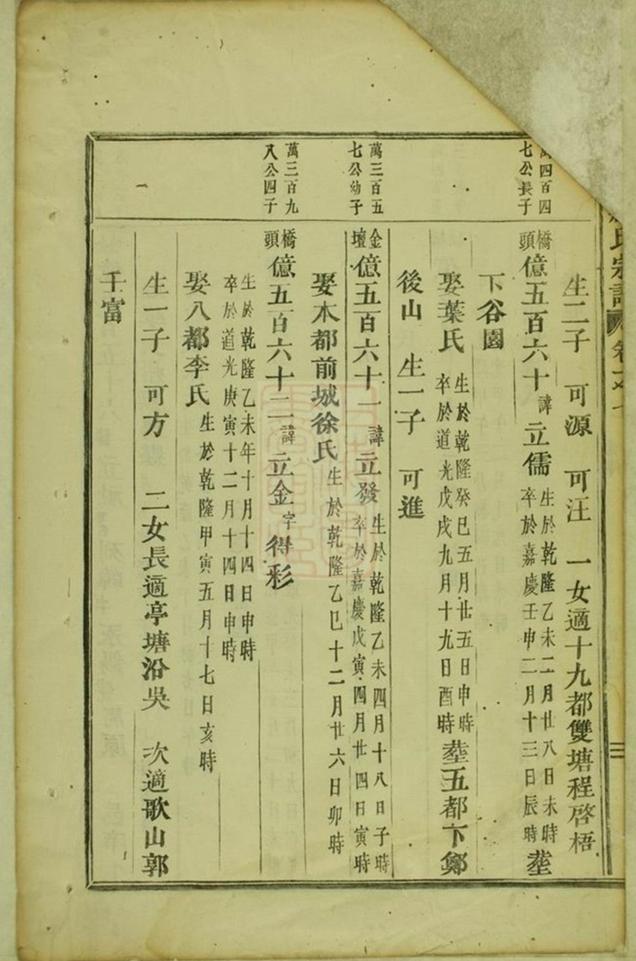 氏宗譜 卷之
生二子 可源 可汪 一女適十九都雙塘程啓梧
四百四
七公長子
橋頭億五百六十諱立儒生於乾隆乙未二月廿八日未時
卒於嘉慶壬申二月十三日辰時塟
下谷園
娶葉氏生於乾隆癸巳五月廿五日申時
卒於道光戊戌九月十九日酉時塟五都下鄭
後山 生一子 可進
萬三百五
七公幼子
金壇億五百六十一諱立發生於乾隆乙未四月十八日子時
卒於嘉慶戊寅四月廿四日寅時
娶木都前城徐氏生於乾隆乙巳十二月廿六日卯時
萬三百九
八公四子
橋頭億五百六十二諱立金字得彩
生於乾隆乙未年十月十四日申時
卒於道光庚寅十二月十四日申時
娶八都李氏生於乾隆甲寅五月十七日亥時
生一子 可方 二女長適亭塘沿吳 次適歌山郭
壬富